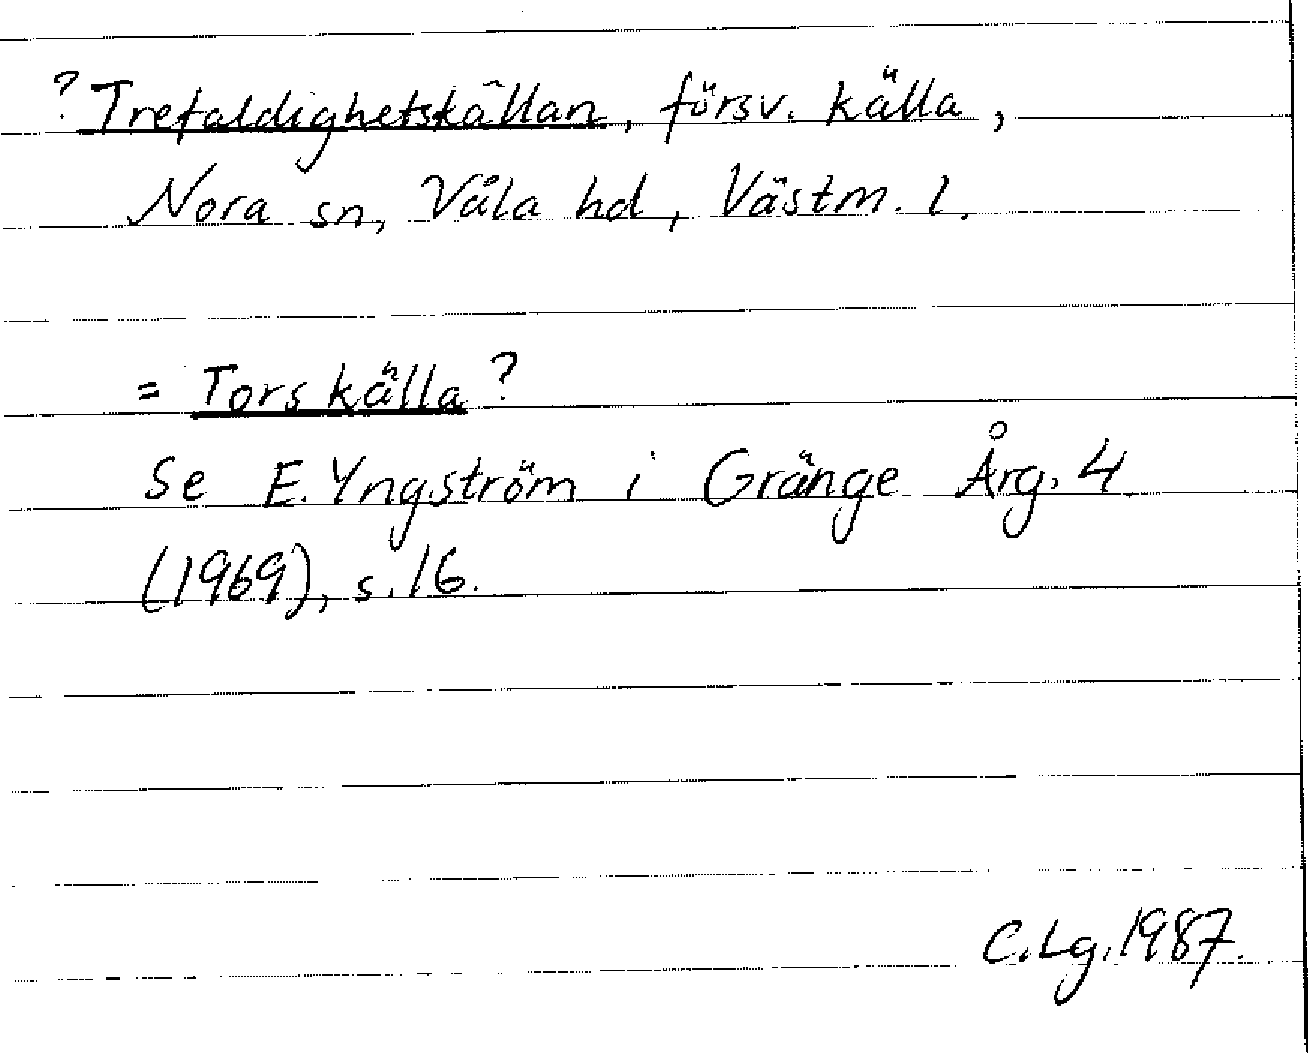 ? Trefaldighetskällan, försv. källa,
Nora sn, Våla hd, Västm. l.
= Tors källa?
Se E. Yngström i Gränge Årg. 4
(1969), s. 16.
C. Lg. 1987.